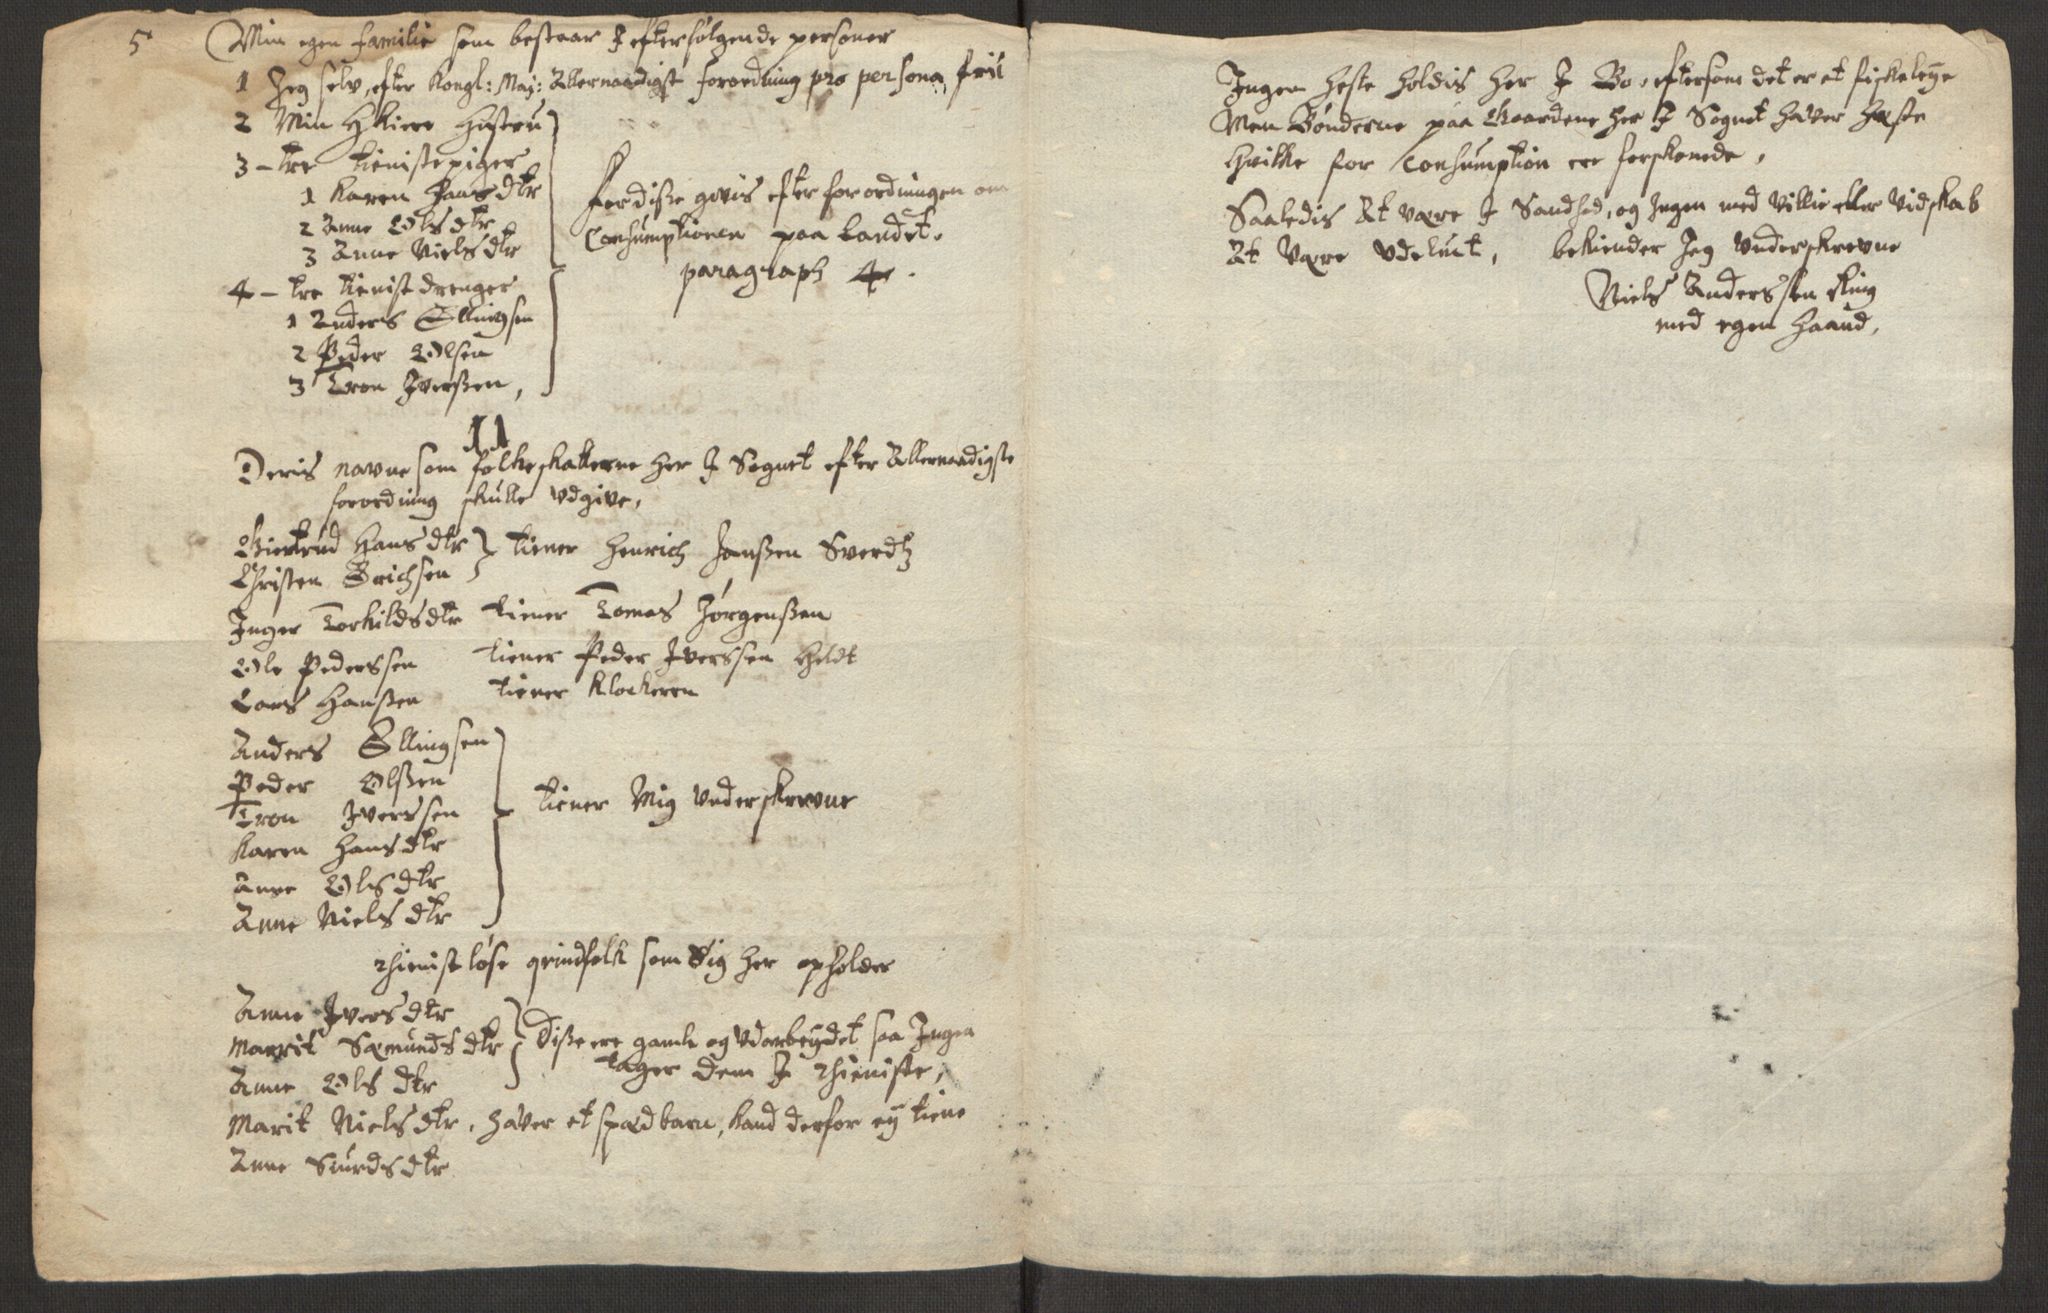 5
Min egen familie som bestaar I efterfølgende personer
1 Jeg selv, efter Kongl: May: Allernaadigst forordning pro persona frii
2 Min Hkiere Hustru
3 - tre tienistepiger
1 Karen Hans dtr
2 Anne Ols dtr
3 Anne Niels dtr
For disse givis efter forordningen om
Consumptionen paa Landet.
paragraph 4.
4 - tre tienist drenger
1 Anders Ellingsen
2 Peder Olsen
3 Tron Iverssen,
II
Deris navne som folkeskatterne her I Sognet efter Allernaadigste
forordning skulle udgive,
Giertrud Hans dtr
Christen Erichsen
tiener Henrich Janssen Sverdtz
Inger Torkilds dtr tiener Tomas Jørgenssen
Ole Pederssen tiener Peder Iverssen Heldt
Lars Hanssen tiener Klockeren
Anders Ellingsen
Peder Olssen
Tron Iverssen
Karen Hans dtr
Anne Ols dtr
Anne Niels dtr
tiener Mig underskrevne
thienistløse qvindfolk som Sig her opholder
Anne Ivers dtr
Marrit Sæmunds dtr
Anne Ols dtr
Disse ere gamle og udarbeydet saa Ingen
tager dem I thieniste,
Marit Niels dtr, haver et spæd barn, kand derfor ey tiene
Anne Siurds dtr
Ingen heste holdis her I Bo, eftersom det er et fiskeleye
Men Bønderne paa Gaardene her I Sognet haver heste
hvilke for Consumption ere forskonede,
Saaledis At være I Sandhed, og Ingen med Villie eller Vidskab
At være udeluct, bekiender Jeg underskrevne
Niels Anderssen
med egen haand,